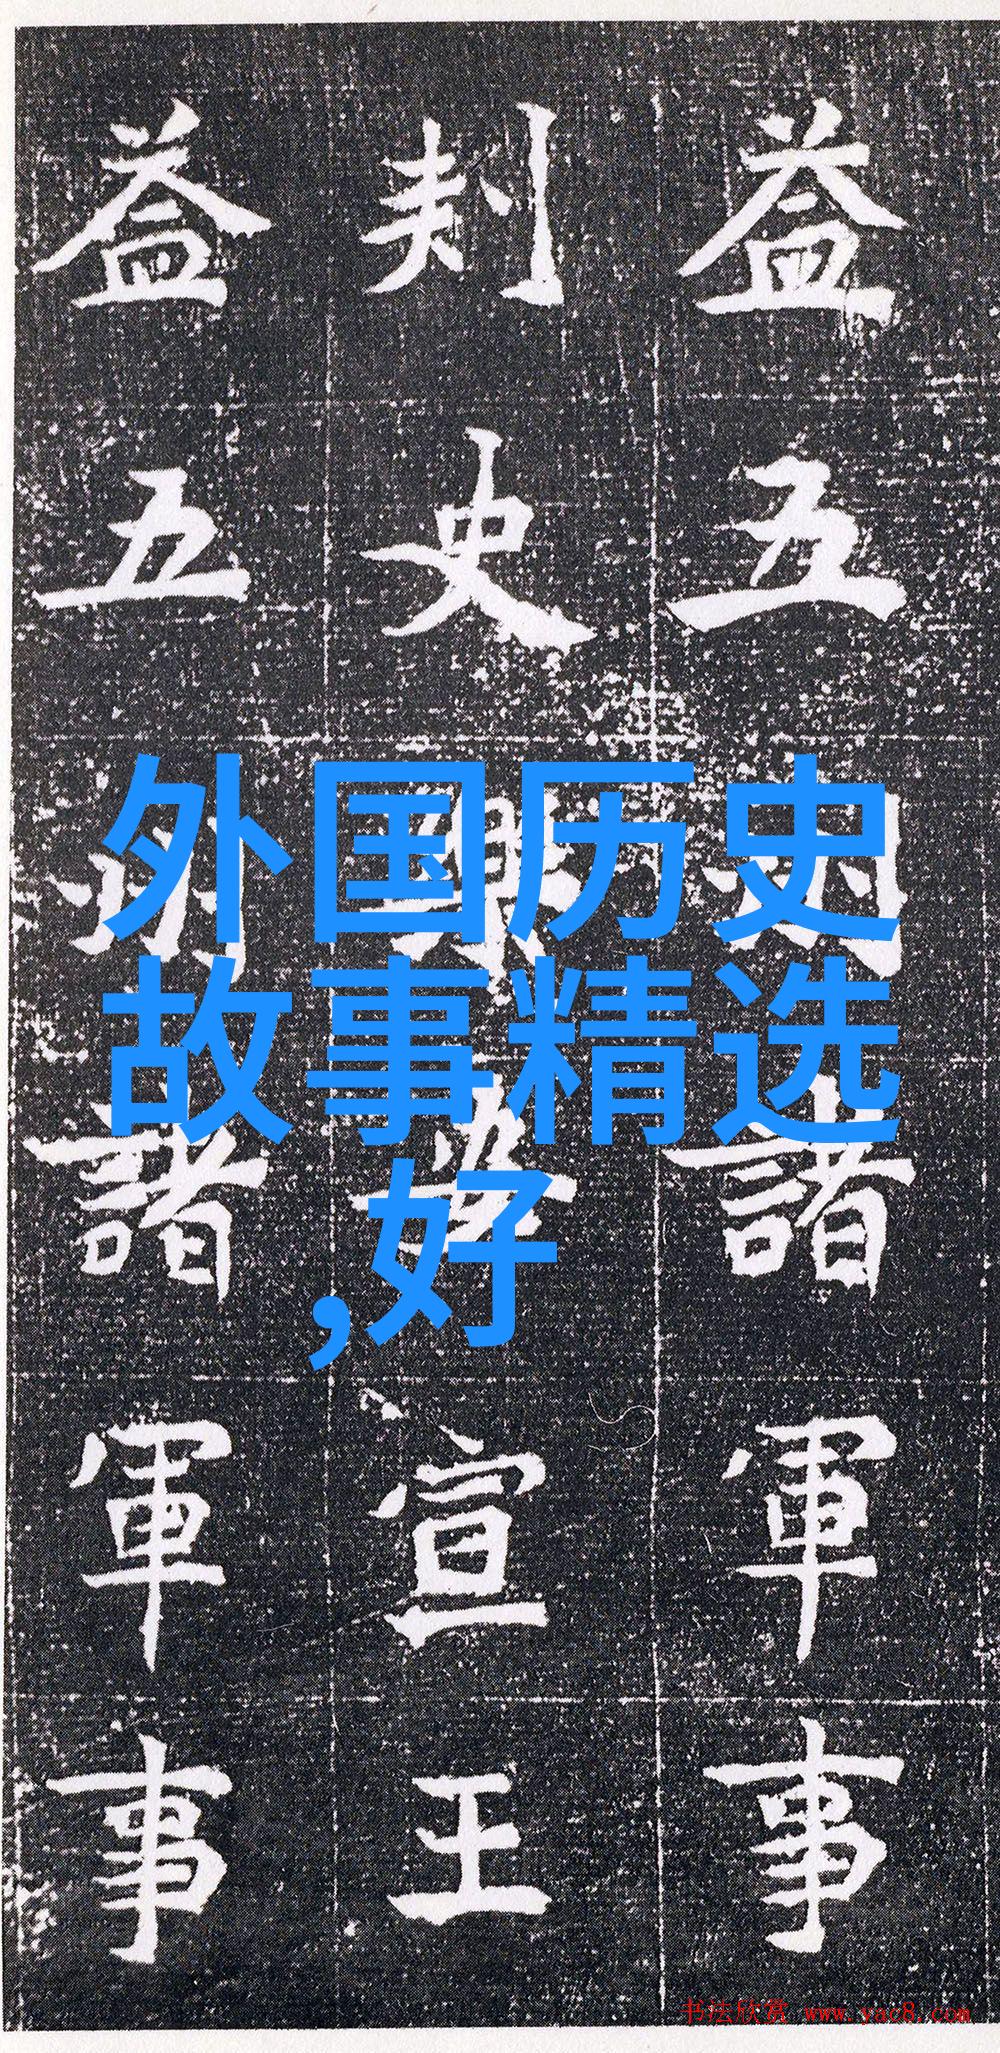 益五州諸軍事
刾史宣王
益五州諸軍事
外国历史
故事精选
,好
书法欣赏 www.yac8.com